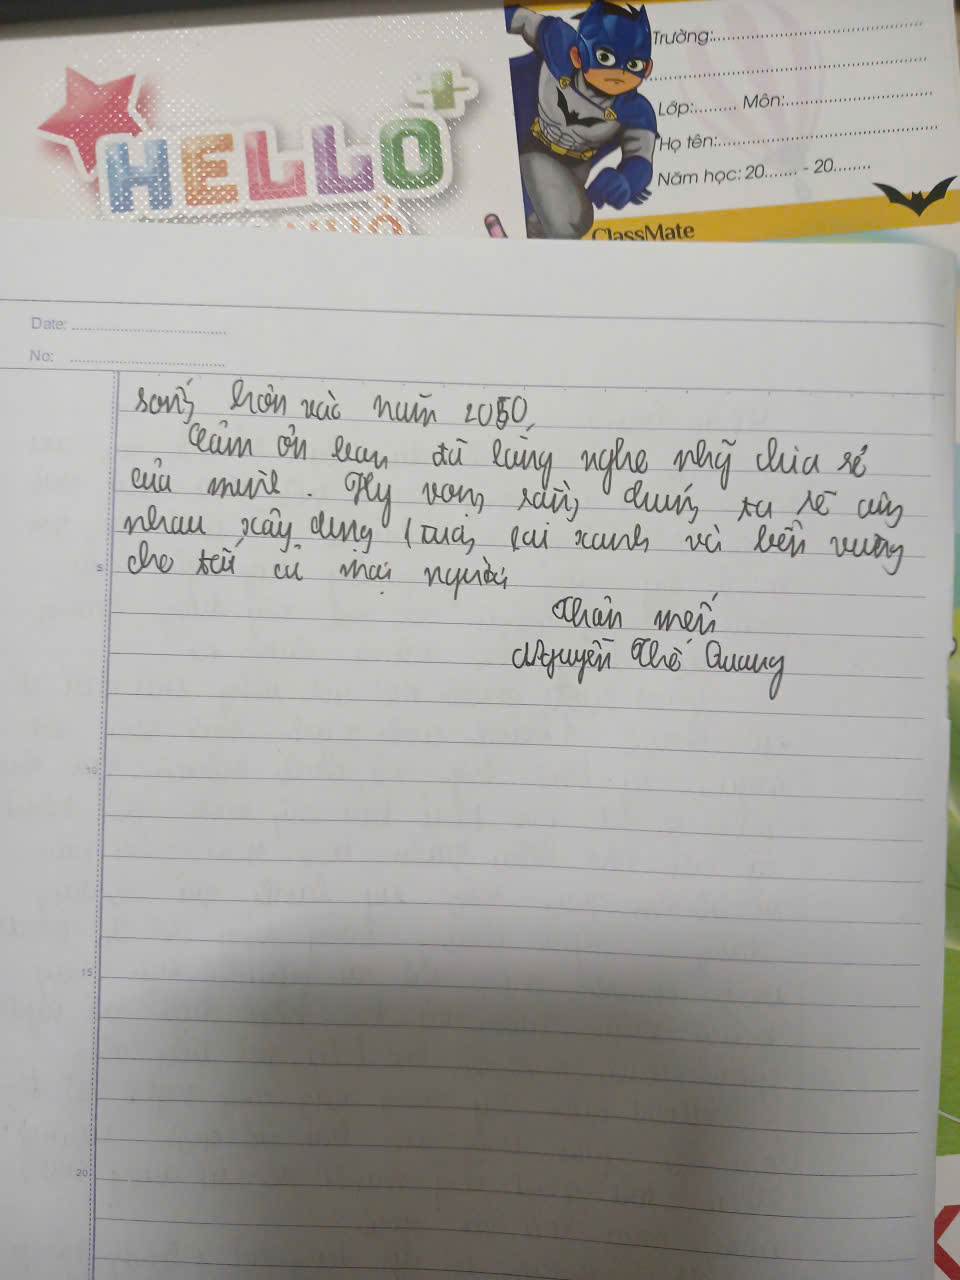 HELLO
NHỎ
Trường:
Lớp: Môn:
Họ tên:
Năm học: 20 - 20
ClassMate
Date:
No:
hơn vào năm 2050.
Cảm ơn bạn đã lắng nghe chia sẻ
của mình. Hy vọng rằng chúng ta sẽ cùng
nhau xây dựng tương lai xanh và bền vững
cho tất cả mọi người
Thân mến
Nguyễn Thế Quang
5
10
15
20